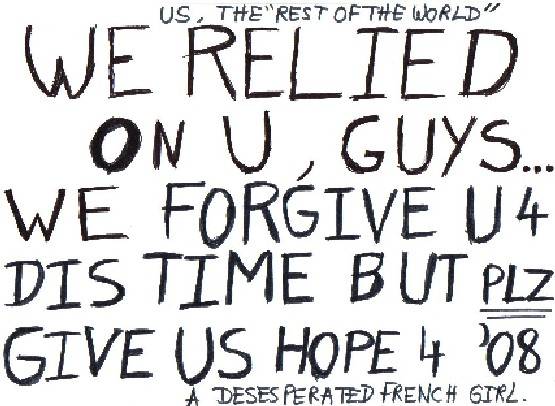 US, THE "REST OF THE WORLD"
WE RELIED
ON U, GUYS...
WE FORGIVE U 4
DIS TIME BUT PLZ
GIVE US HOPE 4 '08
A DESESPERATED FRENCH GIRL.